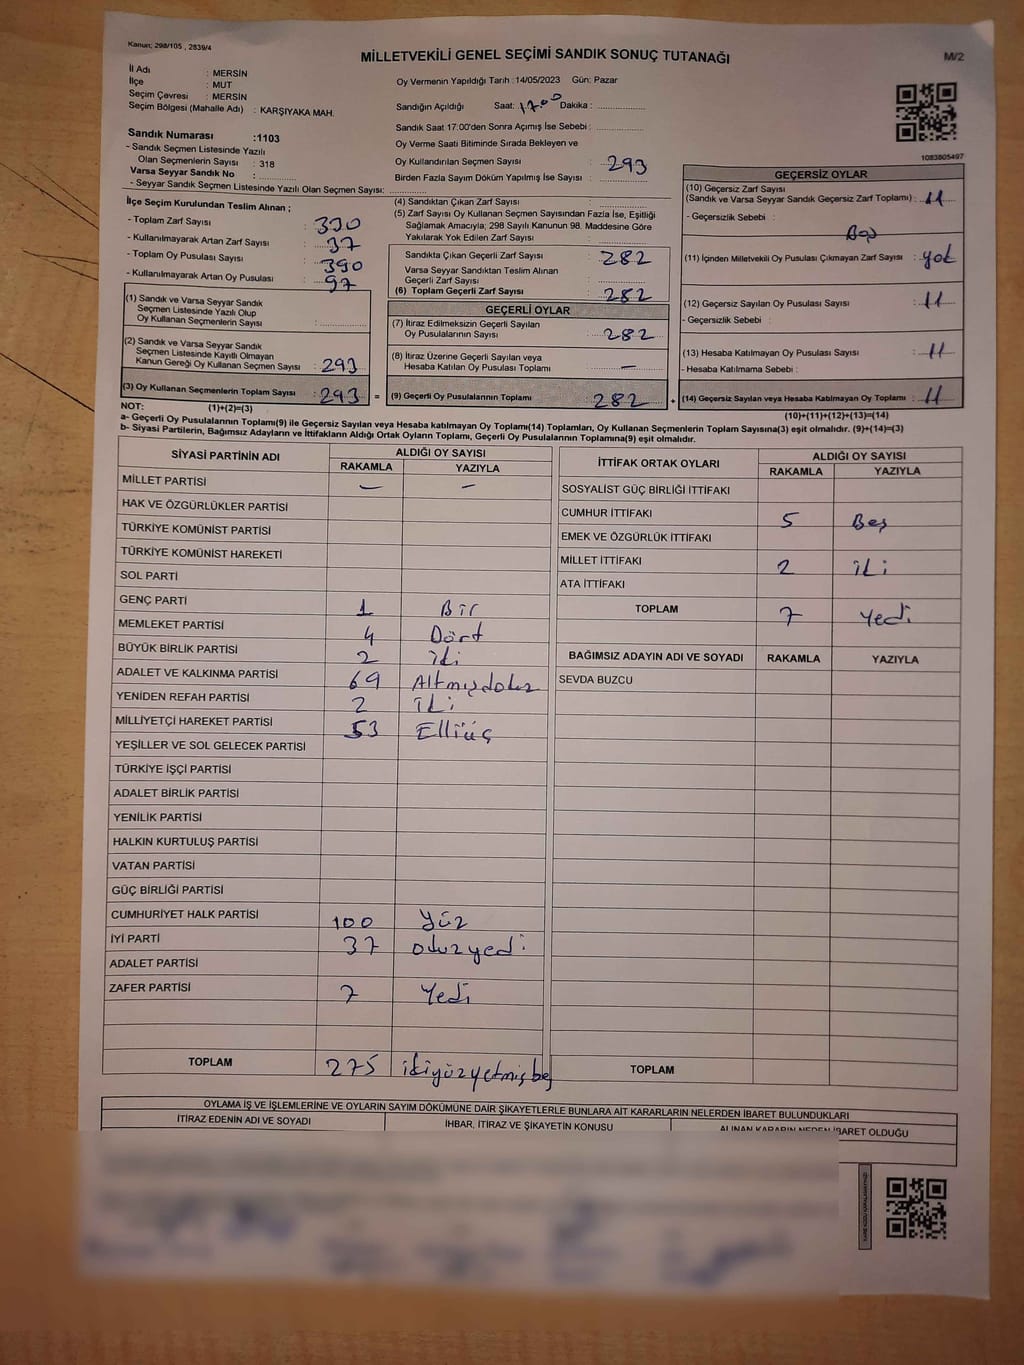 Kanun; 298/105 , 2839/4
MİLLETVEKİLİ GENEL SEÇİMİ SANDIK SONUÇ TUTANAĞI
M/2
İl Adı : MERSİN
İlçe : MUT
Seçim Çevresi : MERSİN
Seçim Bölgesi (Mahalle Adı) : KARŞIYAKA MAH.
Sandık Numarası :1103
- Sandık Seçmen Listesinde Yazılı
Olan Seçmenlerin Sayısı : 318
Varsa Seyyar Sandık No :
- Seyyar Sandık Seçmen Listesinde Yazılı Olan Seçmen Sayısı:
Oy Vermenin Yapıldığı Tarih :14/05/2023 Gün: Pazar
Sandığın Açıldığı Saat: 17:00 Dakika :
Sandık Saat 17:00'den Sonra Açımış İse Sebebi :
Oy Verme Saati Bitiminde Sırada Bekleyen ve
Oy Kullandırılan Seçmen Sayısı : 293
Birden Fazla Sayım Döküm Yapılmış İse Sayısı :
1083805497
İlçe Seçim Kurulundan Teslim Alınan ;
- Toplam Zarf Sayısı : 330
- Kullanılmayarak Artan Zarf Sayısı : 37
- Toplam Oy Pusulası Sayısı : 390
- Kullanılmayarak Artan Oy Pusulası : 97
(1) Sandık ve Varsa Seyyar Sandık
Seçmen Listesinde Yazılı Olup
Oy Kullanan Seçmenlerin Sayısı :
(2) Sandık ve Varsa Seyyar Sandık
Seçmen Listesinde Kayıtlı Olmayan
Kanun Gereği Oy Kullanan Seçmen Sayısı : 293
(3) Oy Kullanan Seçmenlerin Toplam Sayısı : 293 =
(4) Sandıktan Çıkan Zarf Sayısı :
(5) Zarf Sayısı Oy Kullanan Seçmen Sayısından Fazla İse, Eşitliği
Sağlamak Amacıyla; 298 Sayılı Kanunun 98. Maddesine Göre
Yakılarak Yok Edilen Zarf Sayısı :
Sandıkta Çıkan Geçerli Zarf Sayısı : 282
Varsa Seyyar Sandıktan Teslim Alınan
Geçerli Zarf Sayısı :
(6) Toplam Geçerli Zarf Sayısı : 282
GEÇERLİ OYLAR
(7) İtiraz Edilmeksizin Geçerli Sayılan
Oy Pusulalarının Sayısı : 282
(8) İtiraz Üzerine Geçerli Sayılan veya
Hesaba Katılan Oy Pusulası Toplamı : —
(9) Geçerli Oy Pusulalarının Toplamı : 282 +
GEÇERSİZ OYLAR
(10) Geçersiz Zarf Sayısı
(Sandık ve Varsa Seyyar Sandık Geçersiz Zarf Toplamı) : 11
- Geçersizlik Sebebi :
Boş
(11) İçinden Milletvekili Oy Pusulası Çıkmayan Zarf Sayısı : yok
(12) Geçersiz Sayılan Oy Pusulası Sayısı : 11
- Geçersizlik Sebebi :
(13) Hesaba Katılmayan Oy Pusulası Sayısı : 11
- Hesaba Katılmama Sebebi :
(14) Geçersiz Sayılan veya Hesaba Katılmayan Oy Toplamı : 11
NOT: (1)+(2)=(3)
(10)+(11)+(12)+(13)=(14)
a- Geçerli Oy Pusulalarının Toplamı(9) ile Geçersiz Sayılan veya Hesaba katılmayan Oy Toplamı(14) Toplamları, Oy Kullanan Seçmenlerin Toplam Sayısına(3) eşit olmalıdır. (9)+(14)=(3)
b- Siyasi Partilerin, Bağımsız Adayların ve İttifakların Aldığı Ortak Oyların Toplamı, Geçerli Oy Pusulalarının Toplamına(9) eşit olmalıdır.
SİYASİ PARTİNİN ADI ALDIĞI OY SAYISI
RAKAMLA YAZIYLA
MİLLET PARTİSİ — —
HAK VE ÖZGÜRLÜKLER PARTİSİ
TÜRKİYE KOMÜNİST PARTİSİ
TÜRKİYE KOMÜNİST HAREKETİ
SOL PARTİ
GENÇ PARTİ 1 Bir
MEMLEKET PARTİSİ 4 Dört
BÜYÜK BİRLİK PARTİSİ 2 iki
ADALET VE KALKINMA PARTİSİ 69 Altmışdokuz
YENİDEN REFAH PARTİSİ 2 iki
MİLLİYETÇİ HAREKET PARTİSİ 53 Elliüç
YEŞİLLER VE SOL GELECEK PARTİSİ
TÜRKİYE İŞÇİ PARTİSİ
ADALET BİRLİK PARTİSİ
YENİLİK PARTİSİ
HALKIN KURTULUŞ PARTİSİ
VATAN PARTİSİ
GÜÇ BİRLİĞİ PARTİSİ
CUMHURİYET HALK PARTİSİ 100 Yüz
İYİ PARTİ 37 otuzyedi
ADALET PARTİSİ
ZAFER PARTİSİ 7 Yedi
TOPLAM 275 ikiyüzyetmişbeş
İTTİFAK ORTAK OYLARI ALDIĞI OY SAYISI
RAKAMLA YAZIYLA
SOSYALİST GÜÇ BİRLİĞİ İTTİFAKI
CUMHUR İTTİFAKI 5 Beş
EMEK VE ÖZGÜRLÜK İTTİFAKI
MİLLET İTTİFAKI 2 iki
ATA İTTİFAKI
TOPLAM 7 Yedi
BAĞIMSIZ ADAYIN ADI VE SOYADI RAKAMLA YAZIYLA
SEVDA BUZCU
TOPLAM
OYLAMA İŞ VE İŞLEMLERİNE VE OYLARIN SAYIM DÖKÜMÜNE DAİR ŞİKAYETLERLE BUNLARA AİT KARARLARIN NELERDEN İBARET BULUNDUKLARI
İTİRAZ EDENİN ADI VE SOYADI İHBAR, İTİRAZ VE ŞİKAYETİN KONUSU ALINAN KARARIN NEDEN İBARET OLDUĞU